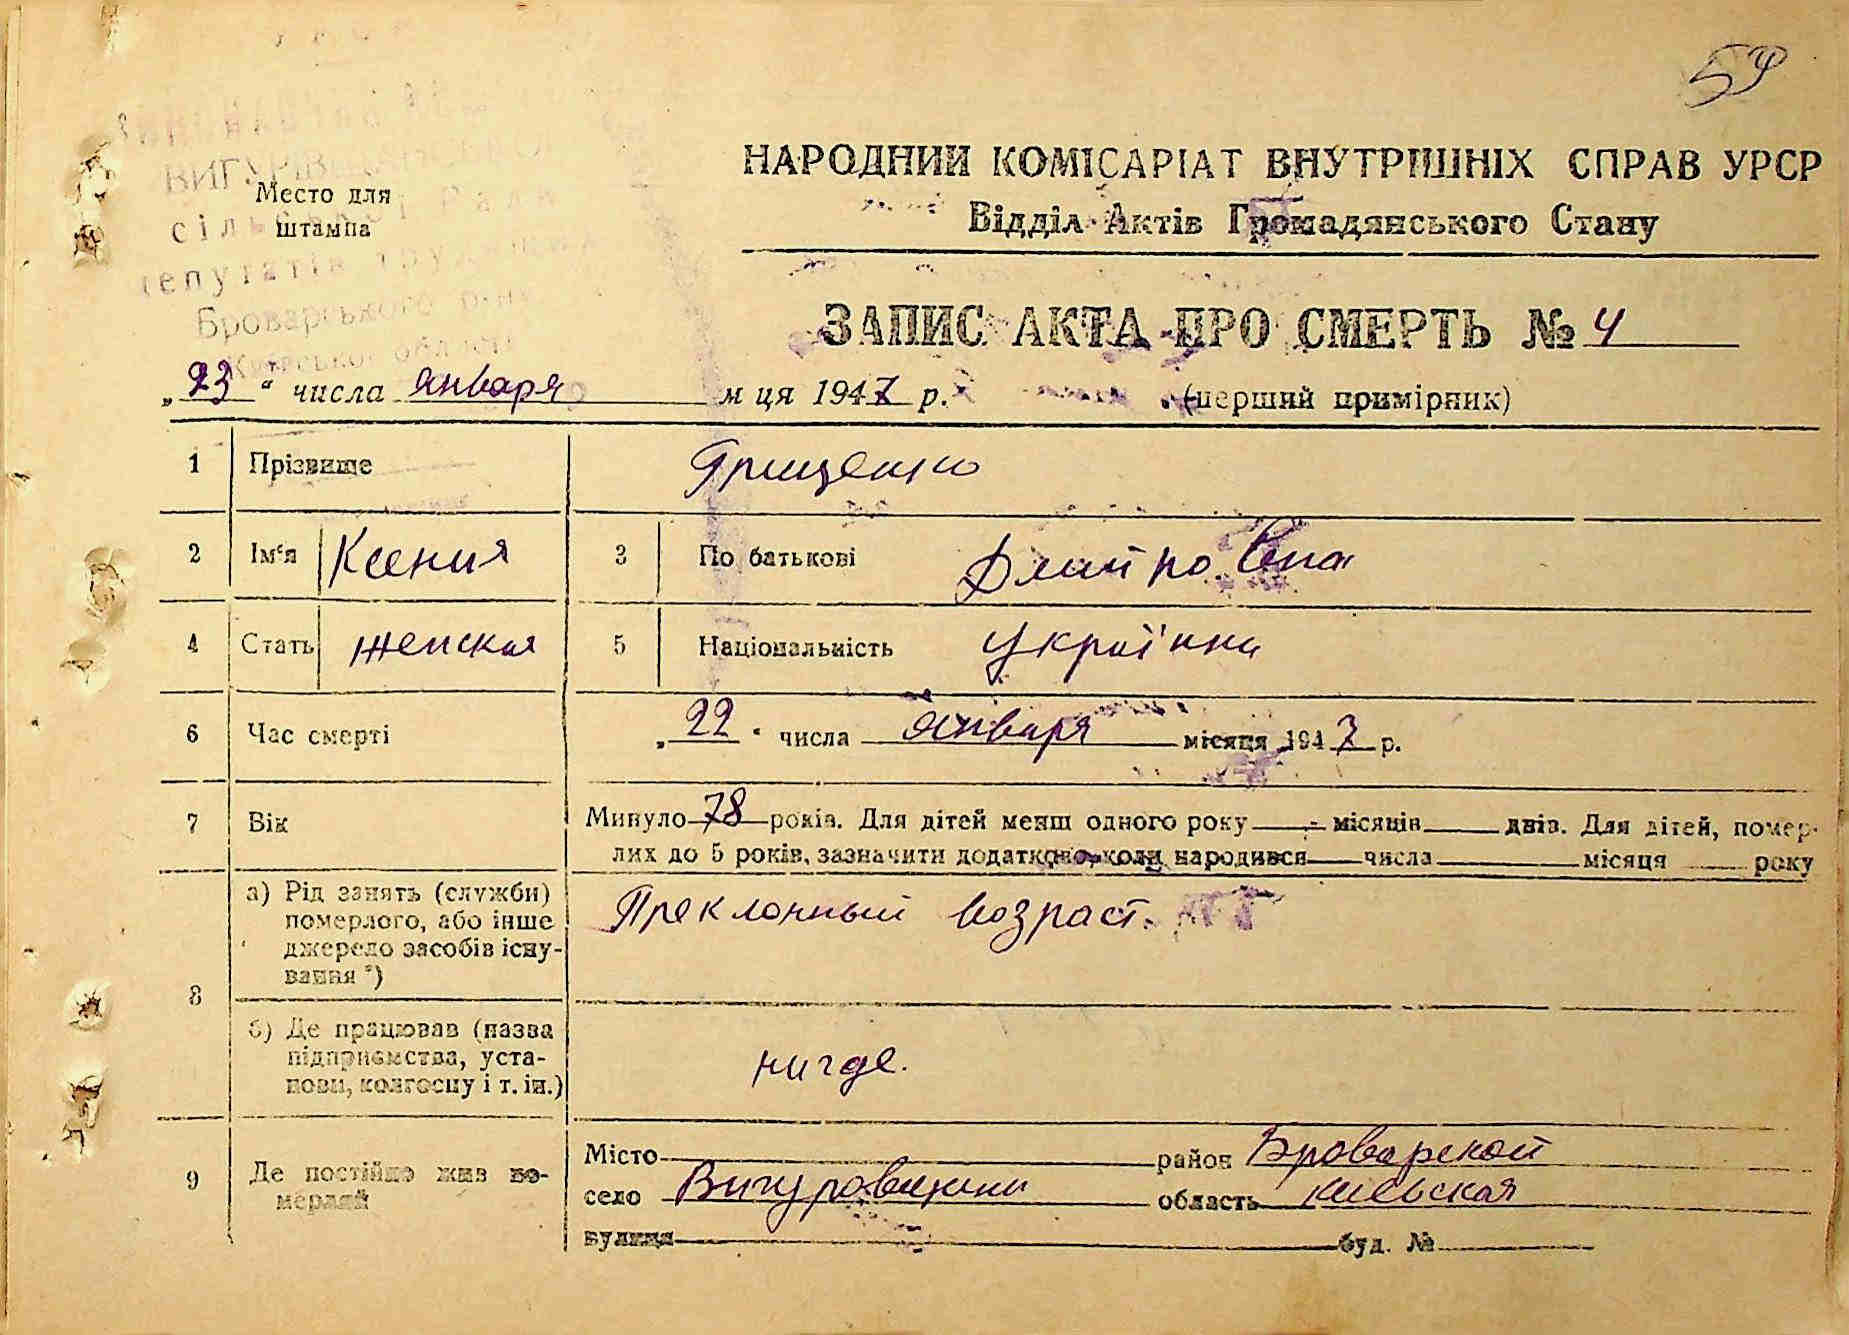 59
НАРОДНИЙ КОМІСАРІАТ ВНУТРІШНІХ СПРАВ УРСР
Відділ Актів Громадянського Стану
Место для
штампа
ВИГУРІВ
сіл Рада
депутатів
Броварського
ЗАПИС АКТА ПРО СМЕРТЬ № 4
„23“ числа января м ця 1947 р. (перший примірник)
1 Прізвище Грищенко
2 Ім‘я Ксения 3 По батькові Дмитровна
4 Стать женская 5 Національність українка
6 Час смерті „22“ числа января місяця 1947 р.
7 Вік Минуло 78 років. Для дітей менш одного року - місяців днів. Для дітей, помер-
лих до 5 років, зазначити додатково, коли народився числа місяця року
8 а) Рід занять (служби)
померлого, або інше
джерело засобів існу-
вання *)
Преклонный возраст.
б) Де працював (назва
підприємства, уста-
нови, колгоспу і т. ін.)
нигде.
9 Де постійно жив по-
мерлий
Місто район Броварской
село Вигуровщини область киевская
вулиця буд. №